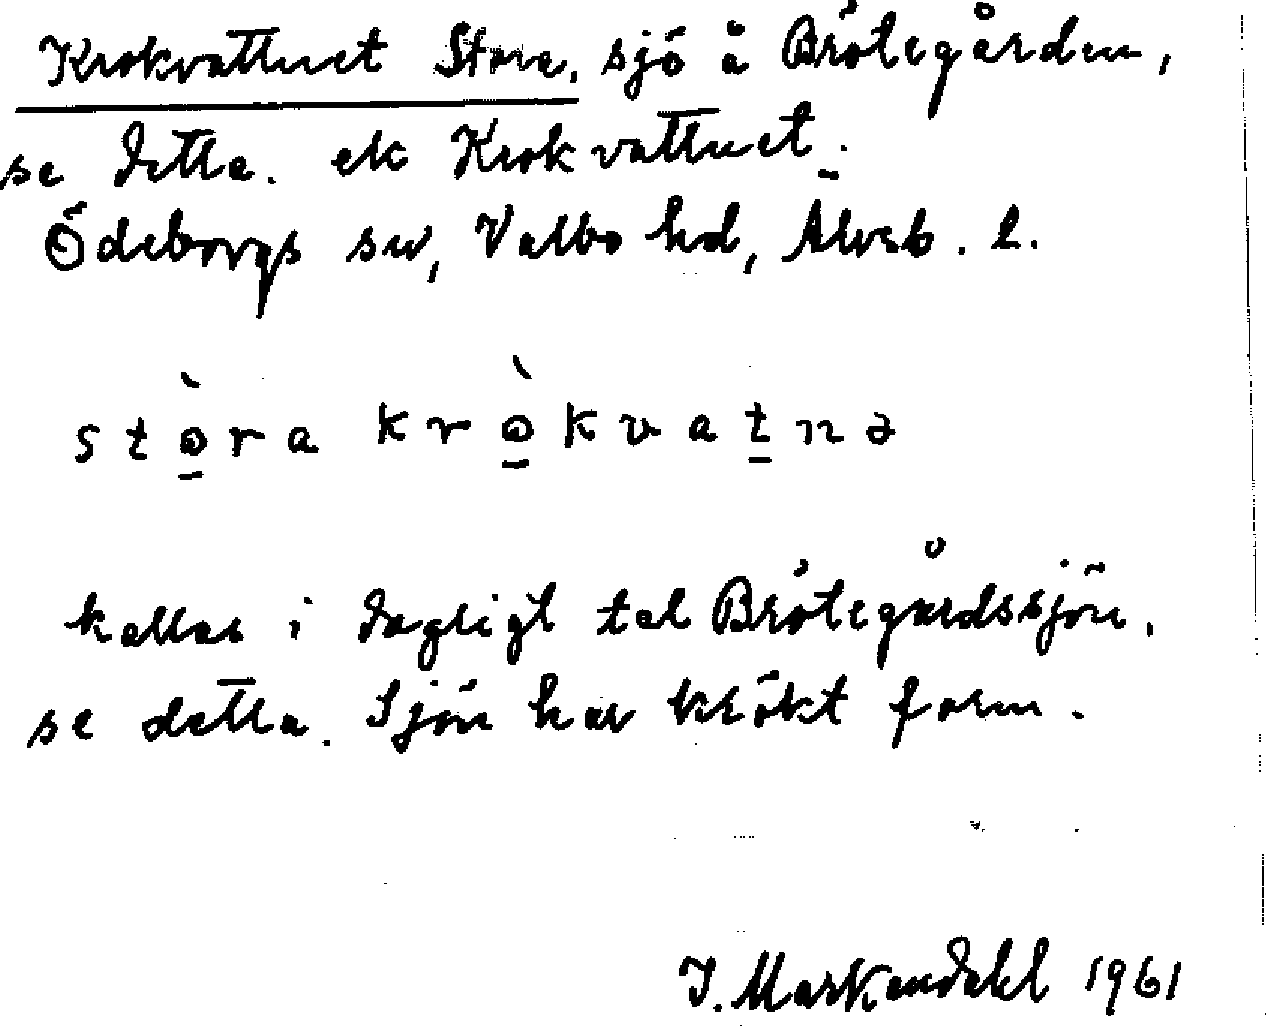 Krokvattnet Stora, sjö å Brötegården,
se detta. ek Krokvattnet.
Ödeborgs sn, Valbo hd, Älvsb. l.
stò̱ra krò̱kvaṯnə
kallas i dagligt tal Brötegårdssjön,
se detta. Sjön har krökt form.
I. Markendahl 1961